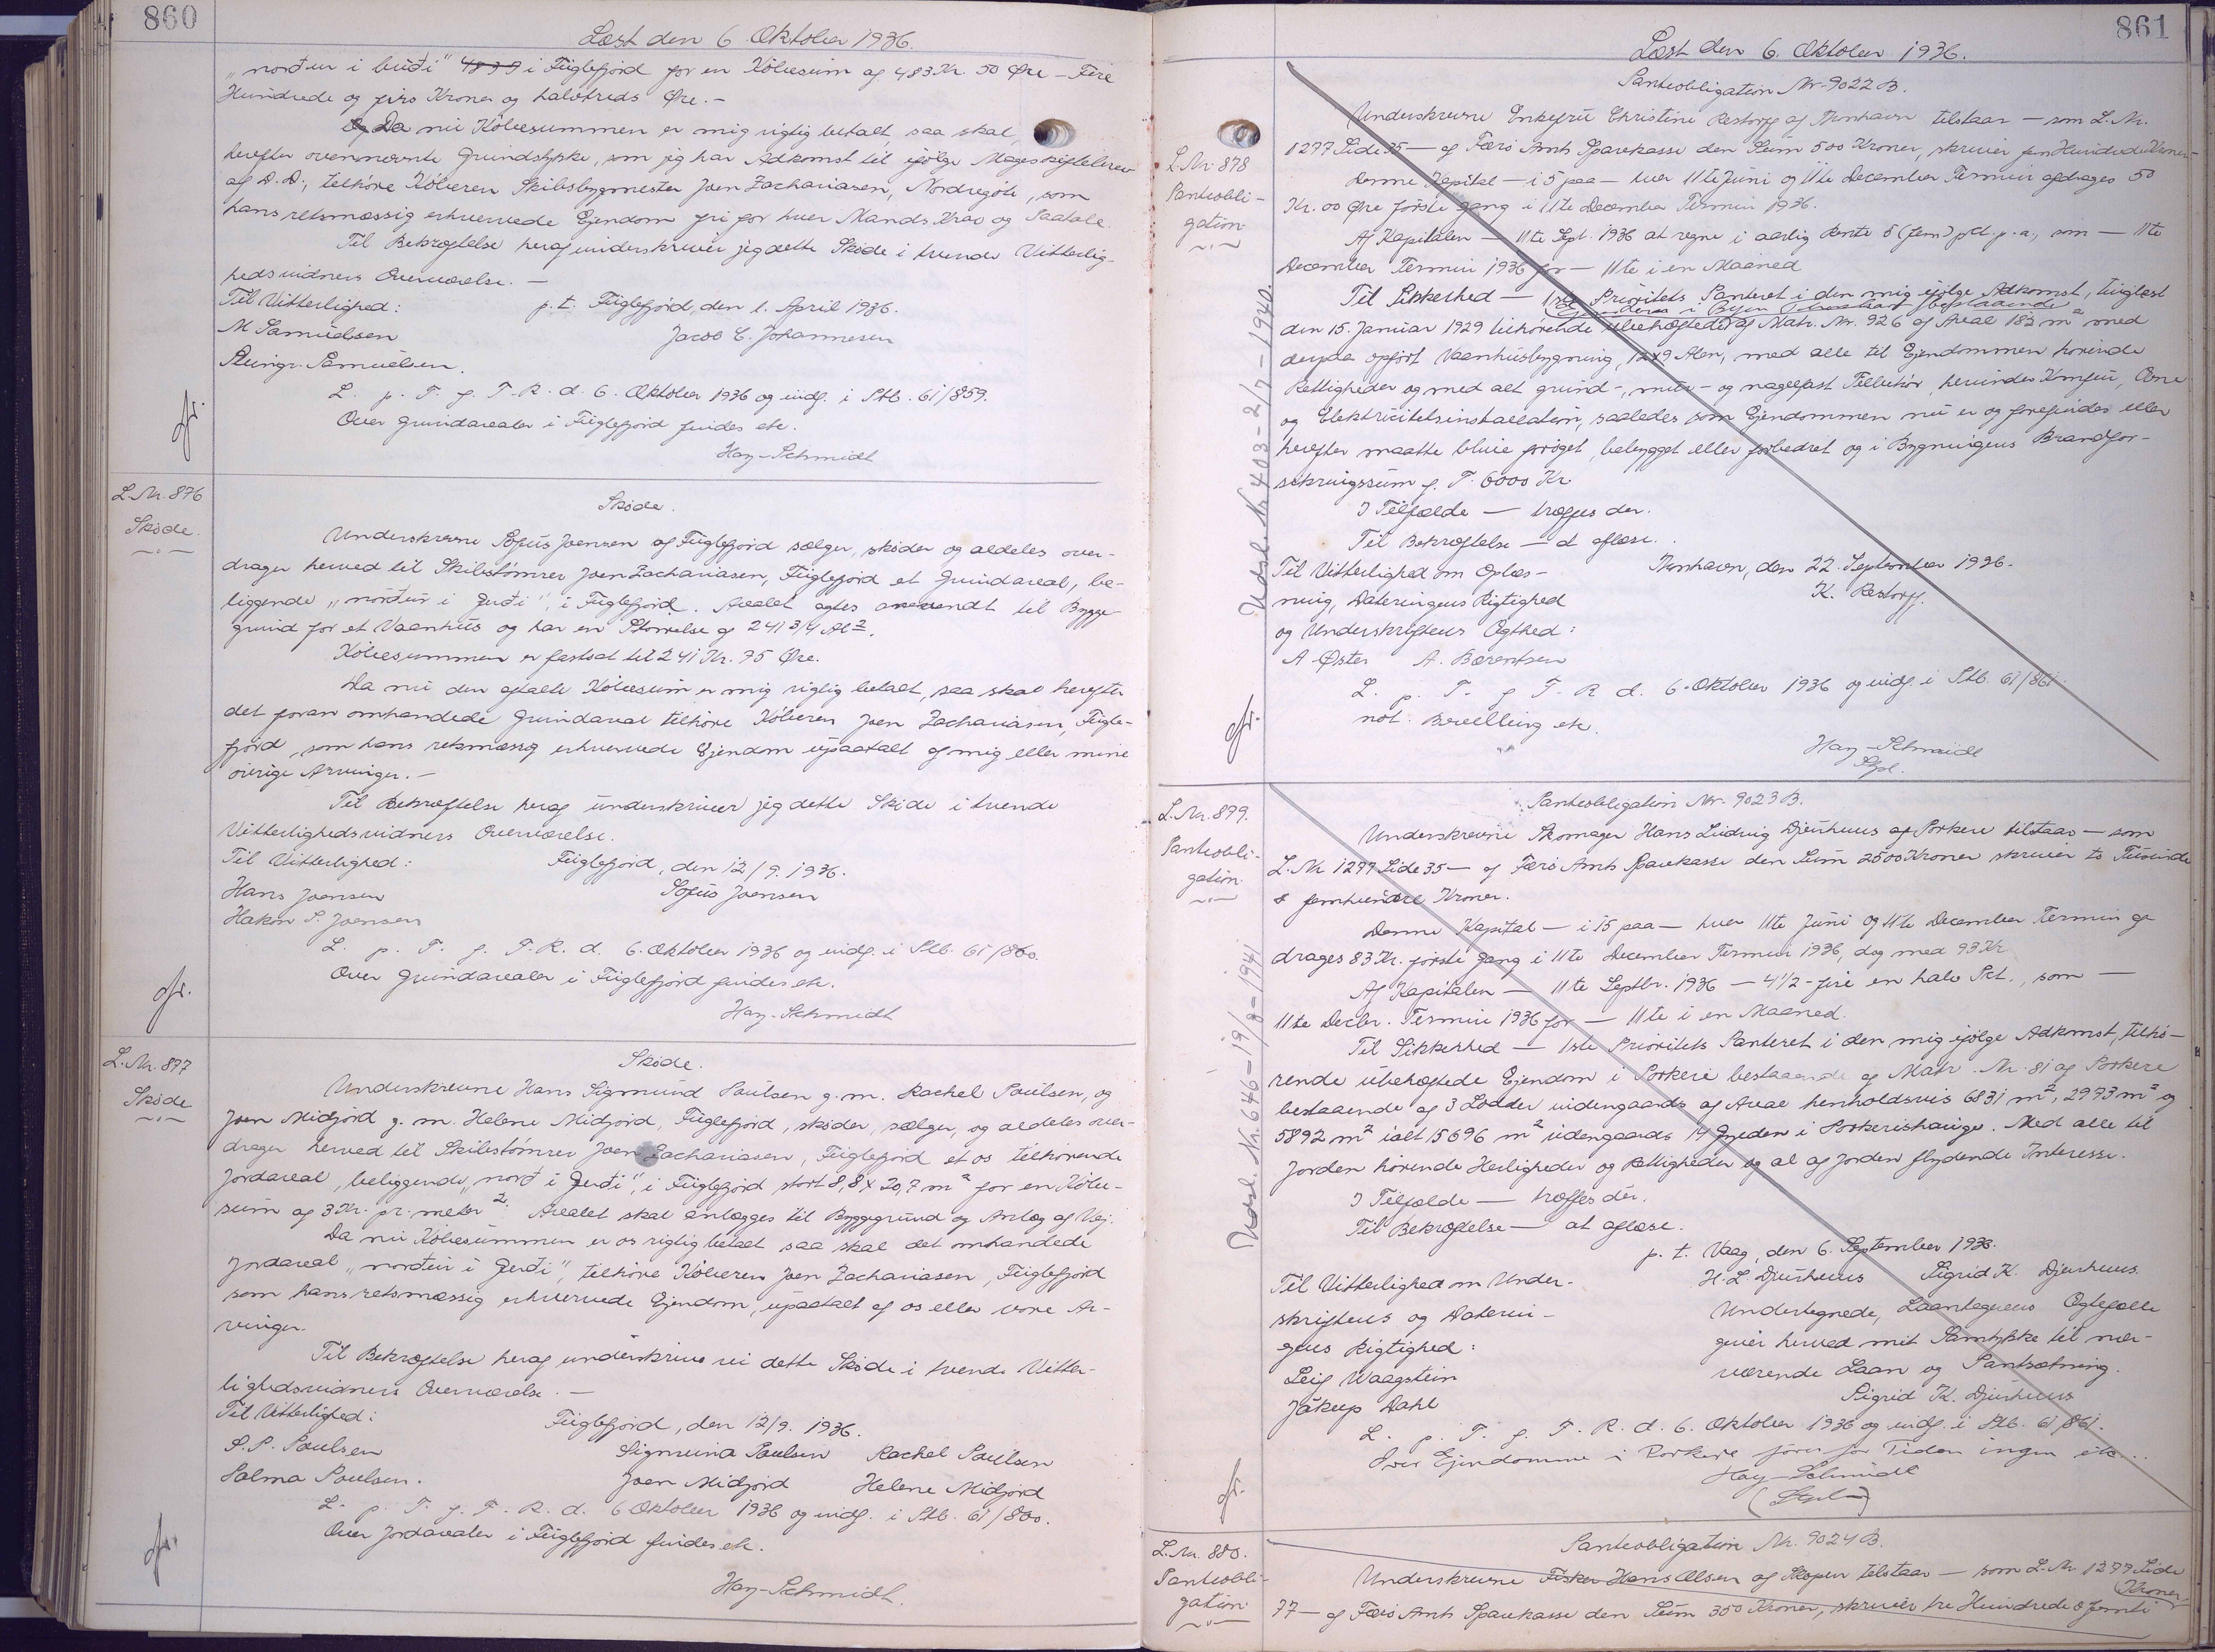 860
Læst den 6. Oktober 1936.
"norður i búði" 4839 i Fuglefjord for en Købesum af 483 Kr. 50 Øre - Fire
Hundrede og firs Kroner og halvtreds Øre. -
Og Da nu Købesummen er mig rigtig betalt, saa skal
herefter ovennævnte Grundstykke, som jeg har Adkomst til ifølge Mageskiftebrev
af D.D., tilhøre Køberen Skibsbygmester Joen Zachariasen, Nordregøte, som
hans retsmæssig erhvervede Ejendom fri for hver Mands Krav og Paatale.
Til Bekræftelse heraf underskriver jeg dette Skøde i tvende Vitterlig-
hedsvidners Overværelse. -
Til Vitterlighed: p.t. Fuglefjord, den 1. April 1936.
M Samuelsen Jacob C. Johannesen
Steingr. Samuelsen.
L. p. T. f. F. R. d. 6. Oktober 1936 og indf. i Skb. 61/859.
Over Grundarealer i Fuglefjord findes etc.
Hay-Schmidt
L.Nr. 876
Skøde.
Skøde.
Underskrevne Sofus Joensen af Fuglefjord sælger, skøder og aldeles over-
drager herved til Skibstømrer Joen Zachariasen, Fuglefjord et Grundareal, be-
liggende "norður i Gerði", i Fuglefjord. Arealet agtes anvendt til Bygge-
grund for et Vaanhus og har en Størrelse af 241 3/4 Al².
Købesummen er fastsat til 241 Kr. 75 Øre.
Da nu den aftalte Købesum er mig rigtig betalt, saa skal herefter
det foran omhandlede Grundareal tilhøre Køberen Joen Zachariasen, Fugle-
fjord, som hans retsmæssig erhvervede Ejendom upaatalt af mig eller mine
øvrige Arvinger. -
Til Bekræftelse heraf underskriver jeg dette Skøde i tvende
Vitterlighedsvidners Overværelse.
Til Vitterlighed: Fuglefjord, den 12/9. 1936.
Hans Joensen Sofus Joensen
Hakon S. Joensen
L. p. T. f. F. R. d. 6. Oktober 1936 og indf. i Skb. 61/860.
Over Grundarealer i Fuglefjord findes etc.
Hay-Schmidt
L.Nr. 877
Skøde
Skøde.
Underskrevne Hans Sigmund Poulsen g.m. Rachel Poulsen, og
Joen Midjord g.m. Helene Midjord, Fuglefjord, skøder, sælger, og aldeles over-
drager herved til Skibstømrer Joen Zachariasen, Fuglefjord et os tilhørende
Jordareal, beliggende "norð i Gerði", i Fuglefjord stort 8,8 x 20,7 m² for en Købe-
sum af 3 Kr. pr. meter². Arealet skal anlægges til Byggegrund og Anlæg af Vej.
Da nu Købesummen er os rigtig betalt saa skal det omhandlede
Jordareal "norður i Gerði", tilhøre Køberen Joen Zachariasen, Fuglefjord
som hans retsmæssig erhvervede Ejendom, upaatalt af os eller vore Ar-
vinger.
Til Bekræftelse heraf underskrive vi dette Skøde i tvende Vitter-
lighedsvidners Overværelse. -
Til Vitterlighed: Fuglefjord, den 12/9. 1936.
S.P. Poulsen Sigmund Poulsen Rachel Poulsen
Salma Poulsen. Joen Midjord Helene Midjord
L. p. T. f. F. R. d. 6. Oktober 1936 og indf. i Skb. 61/860.
Over Jordarealer i Fuglefjord findes etc.
Hay-Schmidt.
861
Læst den 6. Oktober 1936.
L.Nr. 878
Panteobli-
gation
Panteobligation Nr. 9022 B.
Underskrevne Enkefru Christine Restorff af Thorshavn tilstaar - som L.Nr.
1277 Side 35 - af Færø Amts Sparekasse den Sum 500 Kroner, skriver fem Hundrede Kroner -
Denne Kapital - i 5 paa - hver 11te Juni og 11te December Termin afdrages 50
Kr. 00 Øre første gang i 11te December Termin 1936.
Af Kapitalen - 11te Sept. 1936 at regne i aarlig Rente 5 (fem) pCt. p.a., som - 11te
December Termin 1936 for - 11te i en Maaned
Til Sikkerhed - 1ste Prioritets Panteret i den mig ifølge Adkomst, tinglæst
Ejendom i Byen Thorshavn bestaaende
den 15. Januar 1929 tilhørende ubehæftede af Matr. Nr. 926 af Areal 182 m² med
derpaa opført Vaanhusbygning, 12x9 Alen, med alle til Ejendommen hørende
Rettigheder og med alt grund-, mur- og nagelfast Tilbehør, herunder Komfur, Ovne
og Elektricitetsinstallation, saaledes som Ejendommen nu er og forefindes eller
herefter maatte blive forøget, bebygget eller forbedret og i Bygningens Brandfor-
sikringssum f. T. 6000 Kr.
I Tilfælde - træffes der.
Til Bekræftelse - at aflæse.
Til Vitterlighed om Oplæs- Thorshavn, den 22. September 1936.
ning, Dateringens Rigtighed K. Restorff.
og Underskriftens Ægthed:
A Øster A. Bærentsen
L. p. T. f. F. R. d. 6. Oktober 1936 og indf. i Skb. 61/861.
not. Bevilling etc.
Hay-Schmidt
Udsl. Nr. 403 - 2/7 - 1940.
L.Nr. 879.
Panteobli-
gation
Panteobligation Nr. 9023 B.
Underskrevne Skomager Hans Ludvig Djurhuus af Porkere tilstaar - som
L.Nr 1277 Side 35 - af Færø Amts Sparekasse den Sum 2500 Kroner skriver to Tusinde
& femhundrede Kroner.
Denne Kapital - i 15 paa - hver 11te Juni og 11te December Termin af
drages 83 Kr. første gang i 11te December Termin 1936, dog med 93 Kr.
Af Kapitalen - 11te Septbr. 1936 - 4 1/2 - fire en halv Pct., som -
11te Decbr. Termin 1936 for - 11te i en Maaned.
Til Sikkerhed - 1ste Prioritets Panteret i den mig ifølge Adkomst, tilhø-
rende ubehæftede Ejendom i Porkere bestaaende af Matr. Nr. 81 af Porkere
bestaaende af 3 Lodder indengaards af Areal henholdsvis 6831 m², 2973 m² og
5892 m² ialt 15696 m² udengaards 14 Gylden i Porkerishauge. Med alle til
Jorden hørende Herligheder og Rettigheder og al af Jorden flydende Interesse.
I Tilfælde - træffes der.
Til Bekræftelse - at aflæse.
p.t. Vaag, den 6. September 1936.
Til Vitterlighed om Under- H.L. Djurhuus Sigrid K. Djurhuus.
skriftens og Daterin- Undertegnede, Laantagerens Ægtefælle
gens Rigtighed: giver herved mit Samtykke til nær-
Leif Waagstein værende Laan og Pantsætning.
Jákup Dahl Sigrid K. Djurhuus
L. p. T. f. F. R. d. 6. Oktober 1936 og indf. i Skb. 61/861.
Over Ejendomme i Porkere føres for Tiden ingen etc...
Hay-Schmidt
Udsl. Nr. 646 - 19/8 - 1941
L.Nr. 880.
Panteobli-
gation
Panteobligation Nr. 9024 B.
Underskrevne Fisker Hans Olsen af Skopun tilstaar - som L.Nr 1277 Side
77 - af Færø Amts Sparekasse den Sum 350 Kroner, skriver tre Hundrede & femti Kroner